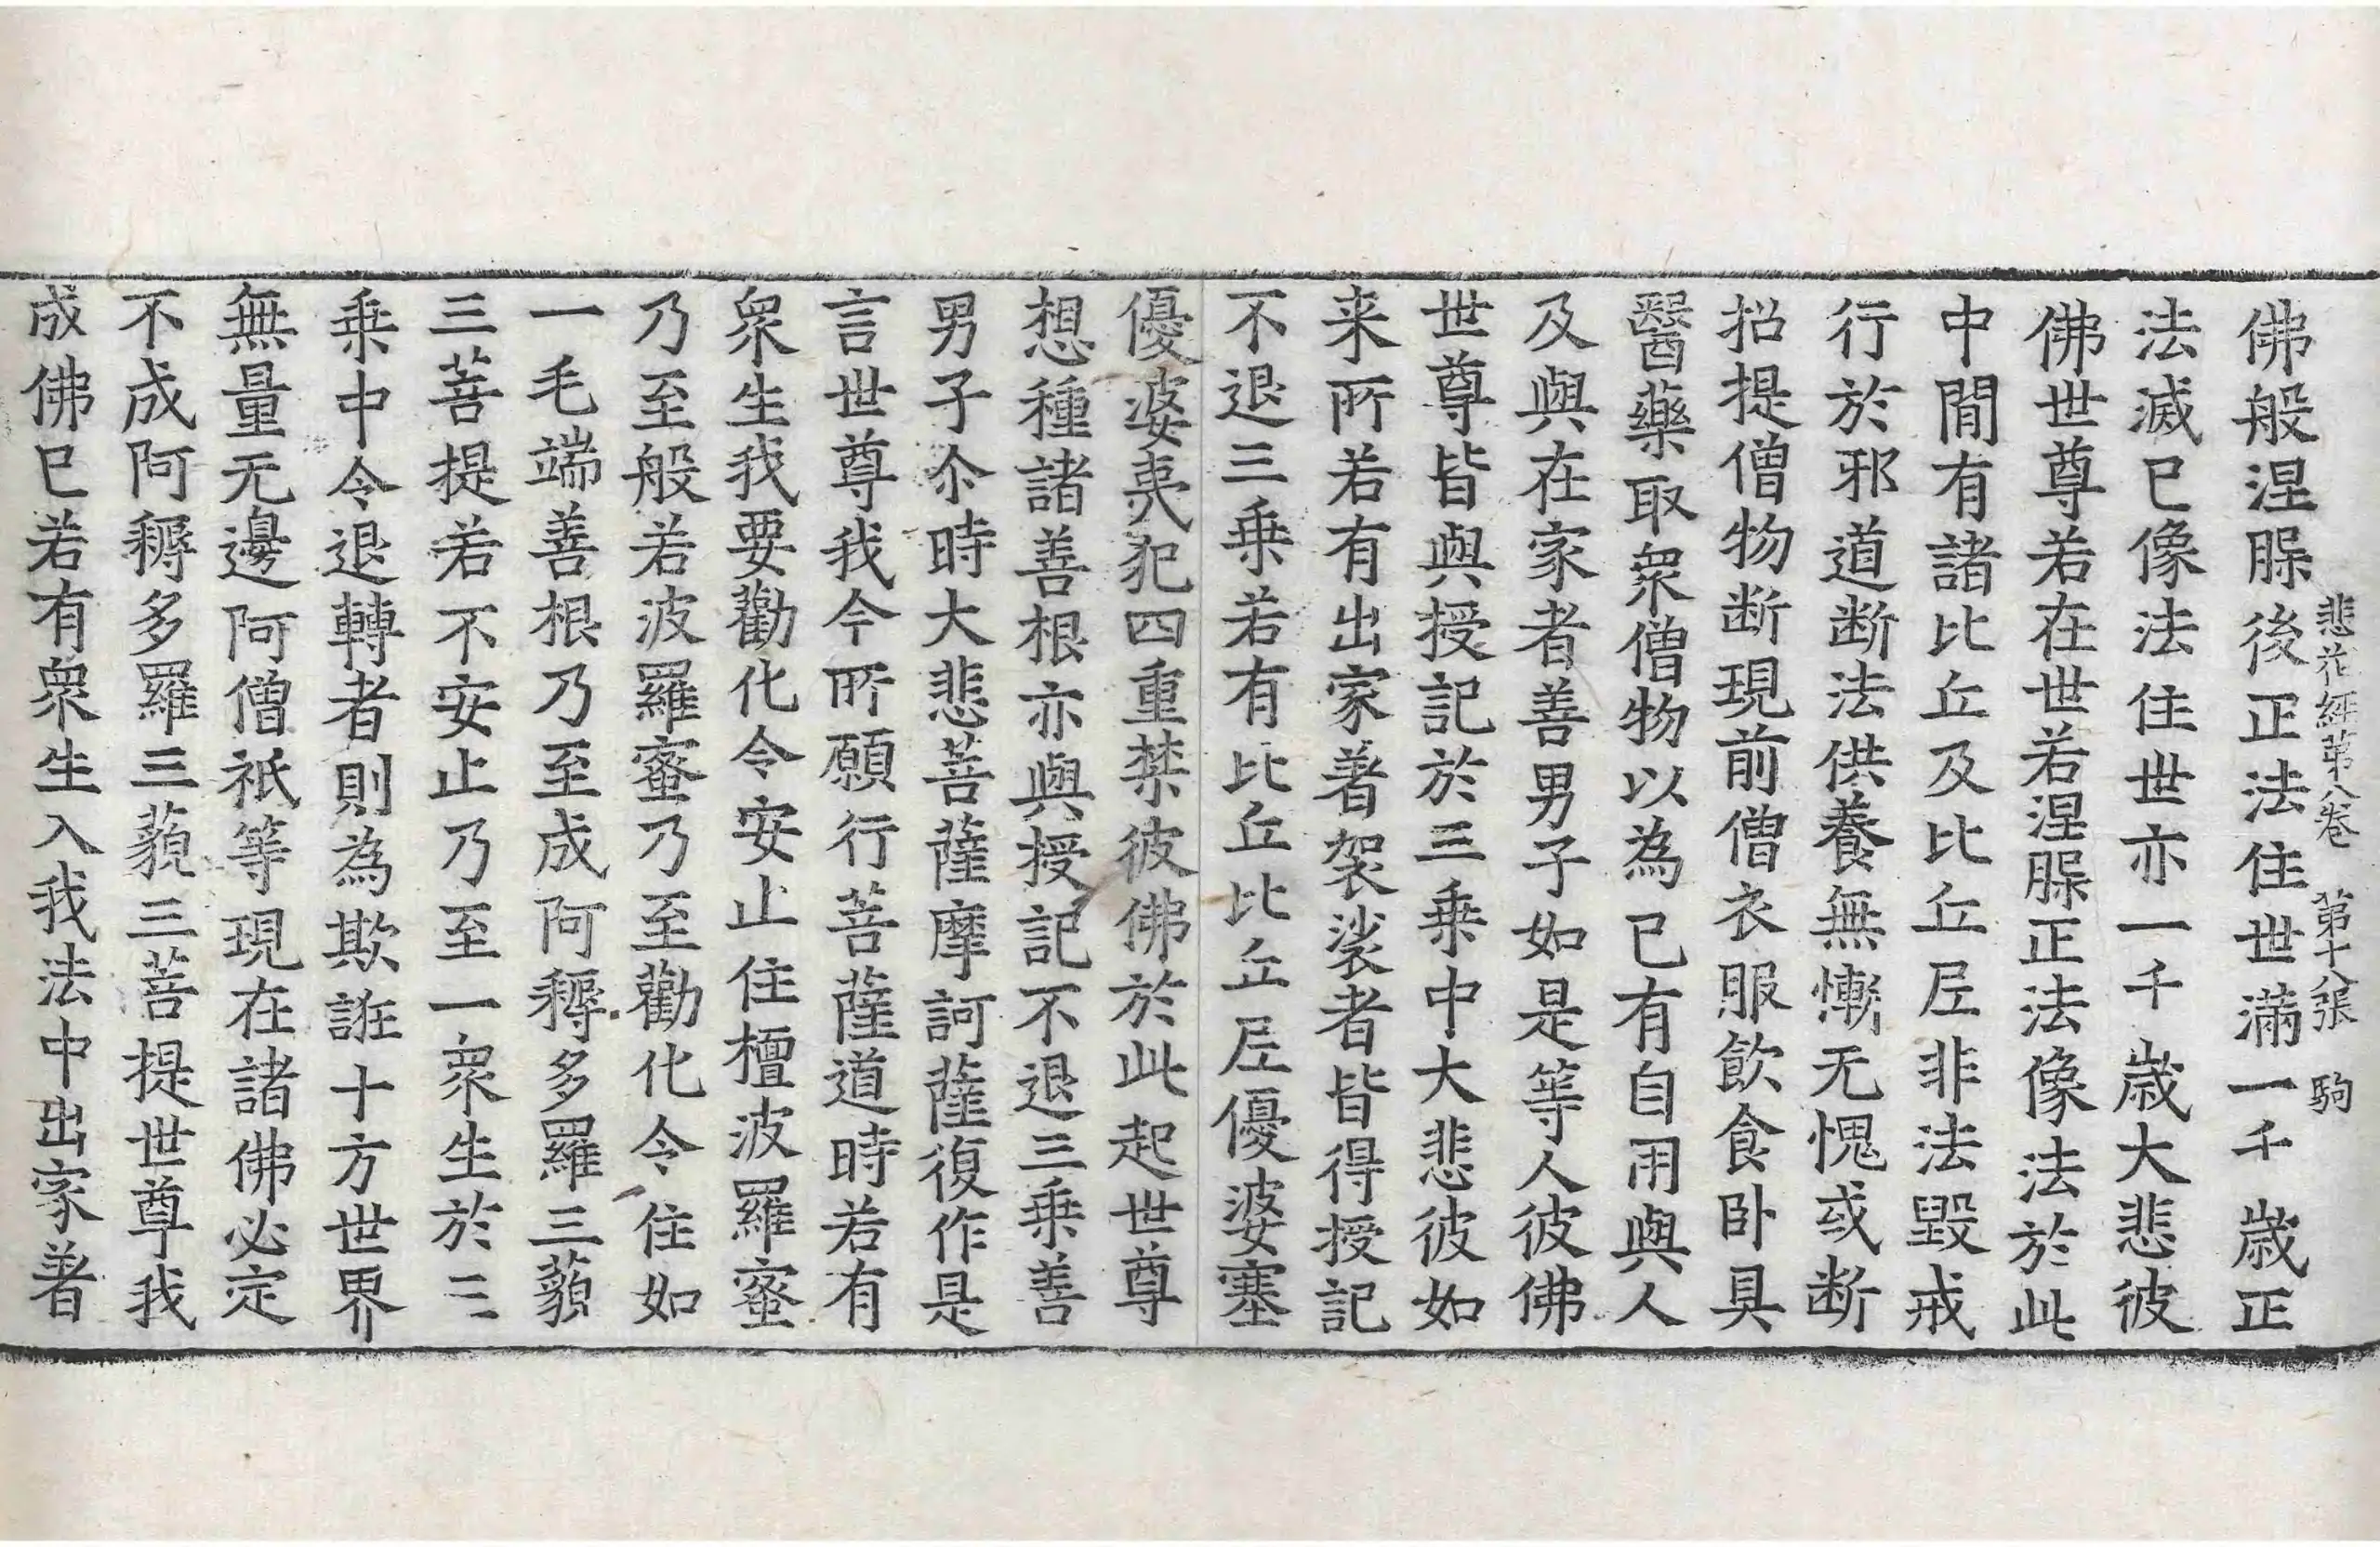 悲花經第八卷　第十八張　駒
佛般涅腂後正法住世滿一千歲正
法滅已像法住世亦一千歲大悲彼
佛世尊若在世若涅腂正法像法於此
中閒有諸比丘及比丘𡰱非法毀戒
行於邪道断法供養無慚无愧或断
招提僧物断現前僧衣服飲食卧具
醫藥取衆僧物以為已有自用與人
及與在家者善男子如是等人彼佛
世尊皆與授記於三乗中大悲彼如
来所若有出家著袈裟者皆得授記
不退三乗若有比丘比丘𡰱優婆塞
優婆夷犯四重禁彼佛於此起世尊
想種諸善根亦與授記不退三乗善
男子尒時大悲菩薩摩訶薩復作是
言世尊我今所願行菩薩道時若有
衆生我要勸化令安止住檀波羅蜜
乃至般若波羅蜜乃至勸化令住如
一毛端善根乃至成阿耨多羅三藐
三菩提若不安止乃至一衆生於三
乗中令退轉者則為欺誑十方世界
無量无邊阿僧祇等現在諸佛必定
不成阿耨多羅三藐三菩提世尊我
成佛已若有衆生入我法中出家著